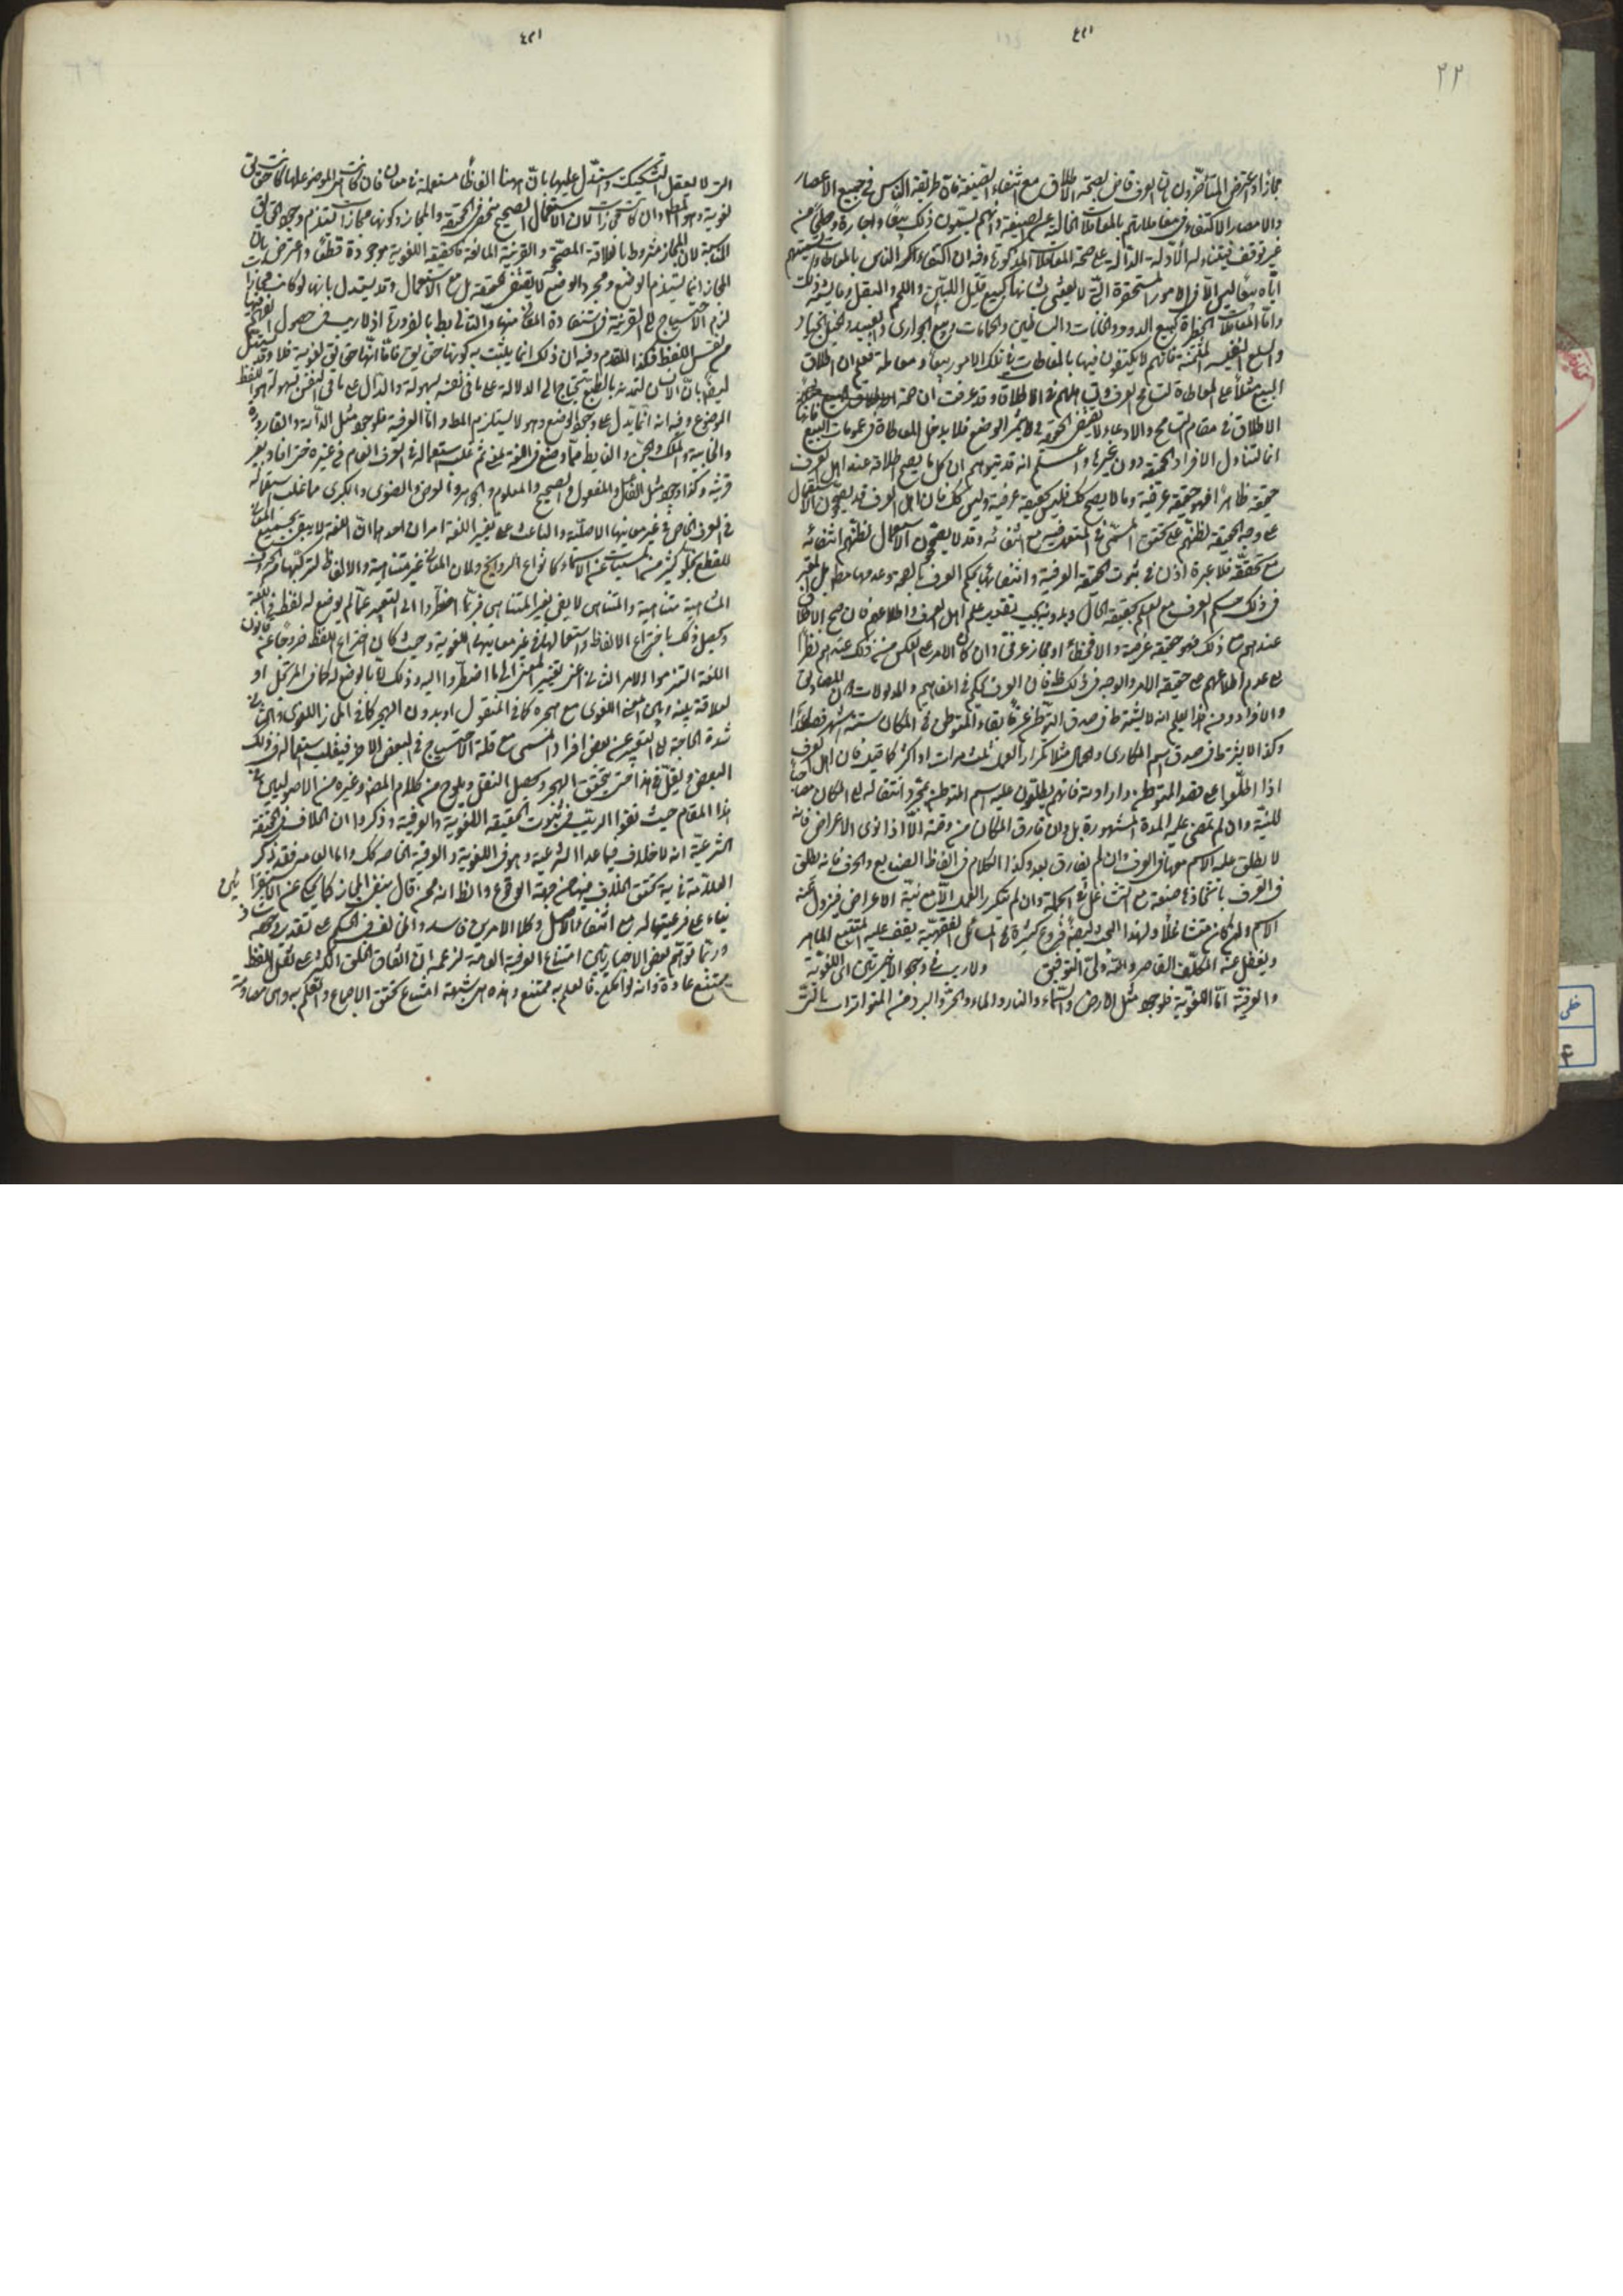 ٢٢
مجازا واعترض المتأخرون بان العرف قاض بصحة الاطلاق مع انتفاء الصيغة فان طريقة الناس في جميع الاعصار
والامصار الاكتفاء في معاملاتهم بالمعاملات الخالية عن الصيغة وانهم يسمون ذلك بيعا واجارة وصلحا من
غير توقف فيتناوله الادلة الدالة على صحة المعاملات المذكورة وفيه ان اكتفاء اكثر الناس بالمعاطاة وتسميتهم
اياه بيعا ليس الا في الامور المستحقرة التي لا يعتنى بشانها كبيع قليل اللبن واللحم والبقل وما يشبه ذلك
واما المعاملات الخطيرة كبيع الدور والخانات والبساتين والحمامات وبيع الجواري والعبيد والخيل الجياد
والسلع النفيسة المثمنة فانهم لا يكتفون فيها بالمعاطاة ولا تلك الامور بيعا ومعاملة فعلم ان اطلاق
البيع مثلا على المعاطاة لتسامح العرف في الاطلاق وقد عرفت ان صحة
الاطلاق في مقام التسامح والادعاء لا يقتضي الحقيقة في الوضع فلا يدخل المعاطاة في عمومات البيع فانها
انما تتناول الافراد الحقيقية دون غيرها واعلم انه قد يتوهم ان كل ما يصح اطلاقه عند اهل العرف
حقيقة ظاهرا فهو حقيقة عرفية وما لا يصح كك فليس حقيقة عرفية وليس كك فان اهل العرف قد يصححون الاستعمال
على وجه الحقيقة لظنهم تحقق المسمى في المستعمل فيه مع انتفائه وقد لا يصححون الاستعمال لظنهم انتفائه
مع تحققه فلا عبرة اذن في ثبوت الحقيقة العرفية وانتفائها بحكم العرف بالصحة وعدمها مط بل المعتبر
في ذلك حكم العرف مع العلم بحقيقة الحال ولو بتقدير علم اهل العرف واطلاعهم فان صح الاطلاق
عندهم مع ذلك فهو حقيقة عرفية والا فخطأ او مجاز عرفي وان كان الامر على العكس من ذلك عندهم نظرا
الى عدم اطلاعهم على حقيقة الامر والوجه في ذلك ظ فان العرف يحكم في المفاهيم والمدلولات لا المصاديق
والافراد ومن هذا يعلم انه لا يشترط في صدق التوطن عرفا بقاء المتوطن في المكان ستة اشهر فصاعدا
وكذا لا يشترط في صدق اسم المكاري والجمال مثلا تكرار العمل ثلث مرات او اكثر كما قيل فان اهل العرف
اذا اطلعوا على قصد المتوطن دارا ومته فانهم يطلقون عليه اسم المتوطن بمجرد انتقاله الى المكان مصاحبا
للنية وان لم تمض عليه المدة المشهورة بل وان فارق المكان من وقته الا اذا نوى الاعراض فانه
لا يطلق عليه الاسم عرفا وان لم يفارق بعد وكذا الكلام في الفاظ الصنايع والحرف فانه يطلق
في العرف باتخاذها صنعة مع التشاغل في الجملة وان لم يتكرر العمل الا مع نية الاعراض فيزول عنه
الاسم وان كان متشاغلا ولهذا البحث فروع كثيرة في المسائل الفقهية يقف عليها المتتبع الماهر
ويغفل عنه المكلف القاصر والله ولي التوفيق ولا ريب في وجود الاخيرتين اي اللغوية
والعرفية اما اللغوية فلوجود مثل الارض والسماء والنار والماء والحر والبرد من المتواترات بالتي
التي لا يعقل التشكيك واستدل عليها بان هنا الفاظا مستعملة في معان فان كانت هي الموضوع لها كانت حقائق
لغوية وهو المط وان كانت مجازات لان الاستعمال الصحيح منحصر في الحقيقة والمجاز وكونها مجازات يستلزم وجود الحقايق
لان المجاز مشروط بالعلاقة المصححة والقرينة المانعة فالحقيقة اللغوية موجودة قطعا واعترض بان
المجاز انما يستلزم الوضع ومجرد الوضع لا يقتضي الحقيقة بل مع الاستعمال وقد يستدل بانها لو كانت مجازا
لزم الاحتياج الى القرينة في استفادة المعاني منها والتالي بط بالضرورة اذ لا ريب في حصول الفهم
من نفس اللفظ فكذا المقدم وفيه ان ذلك انما يثبت به كونها حقايق فاما انها حقايق لغوية فلا وقد يستدل
ايضا بان الانسان لتمدنه بالطبع يحتاج الى الدلالة على ما في نفسه بسهولة والدال على ما في النفس بسهولة هو اللفظ
الموضوع وفيه انه انما يدل على وجود الوضع وهو لا يستلزم المط واما العرفية فلوجود مثل الدابة والقارورة
والخابية والملك والجن والغائط مما وضع في اللغة لمعنى ثم غلب استعماله في العرف العام في غيره حتى افاد بغير
قرينة وكذا وجود مثل الفاعل والمفعول والصحيح والمعلوم والجوهر والعرض والصغرى والكبرى مما غلب استعماله
في العرف الخاص في غير معانيها الاصلية والباعث على تغيير اللغة امران احدهما ان اللغة لا يفي بجميع المعاني
للقطع بخلو كثير من المسميات عن الاسماء كانواع الروايح ولان المعاني غير متناهية والالفاظ لتركبها من الحروف
المتناهية متناهية والمتناهي لا يفي بغير المتناهي فربما اضطروا الى التعبير عما لم يوضع له لفظ في اللغة
وتحصيل ذلك باختراع الالفاظ واستعمالها في غير معانيها اللغوية وحيث كان اختراع اللفظ خروجا عن قانون
اللغة التزموا الامر الثاني اعني تغيير المعنى الى ما اضطروا اليه وذلك اما بالوضع له كما في المرتجل او
لعلاقة بينه وبين المعنى اللغوي مع هجره كما في المنقول او بدون الهجر كما في المجاز اللغوي والثاني
شدة الحاجة الى التعبير عن بعض افراد المسمى مع قلة الاحتياج في البعض الاخر فيغلب استعماله في ذلك
البعض ويقل في هذا حتى يتحقق الهجر ويحصل النقل ويلوح من كلام المص وغيره من الاصوليين في
هذا المقام حيث نفوا الريب في ثبوت الحقيقة اللغوية والعرفية وذكروا ان الخلاف في الحقيقة
الشرعية انه لا خلاف فيما عدا الشرعية وهو في اللغوية والعرفية الخاصة كك واما العامة فقد ذكر
العلامة في يه تحقق الخلاف فيها من جهة الوقوع والظ انه ممن قال بنفي المجاز كما يحكى عن الاسفرايني
بناء على فرعيتها له مع انتفاء الاصل وكلا الامرين فاسد والمخالف في الحكم على تقديره شاذ
وربما توهم بعض الاخباريين امتناع العرفية العامة لزعمه ان اتفاق الخلق الكثير على نقل اللفظ
ممتنع عادة وانه لو اتفق فالعلم به ممتنع وهذه هي شبهة امتناع تحقق الاجماع والعلم به وهي مصادمة